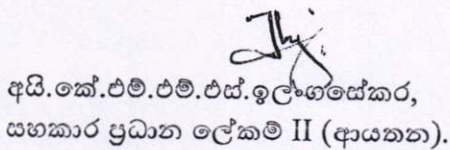 අයි.කේ.එම්.එම්.එස්.ඉලංගසේකර,
සහකාර ප්‍රධාන ලේකම් II (ආයතන).